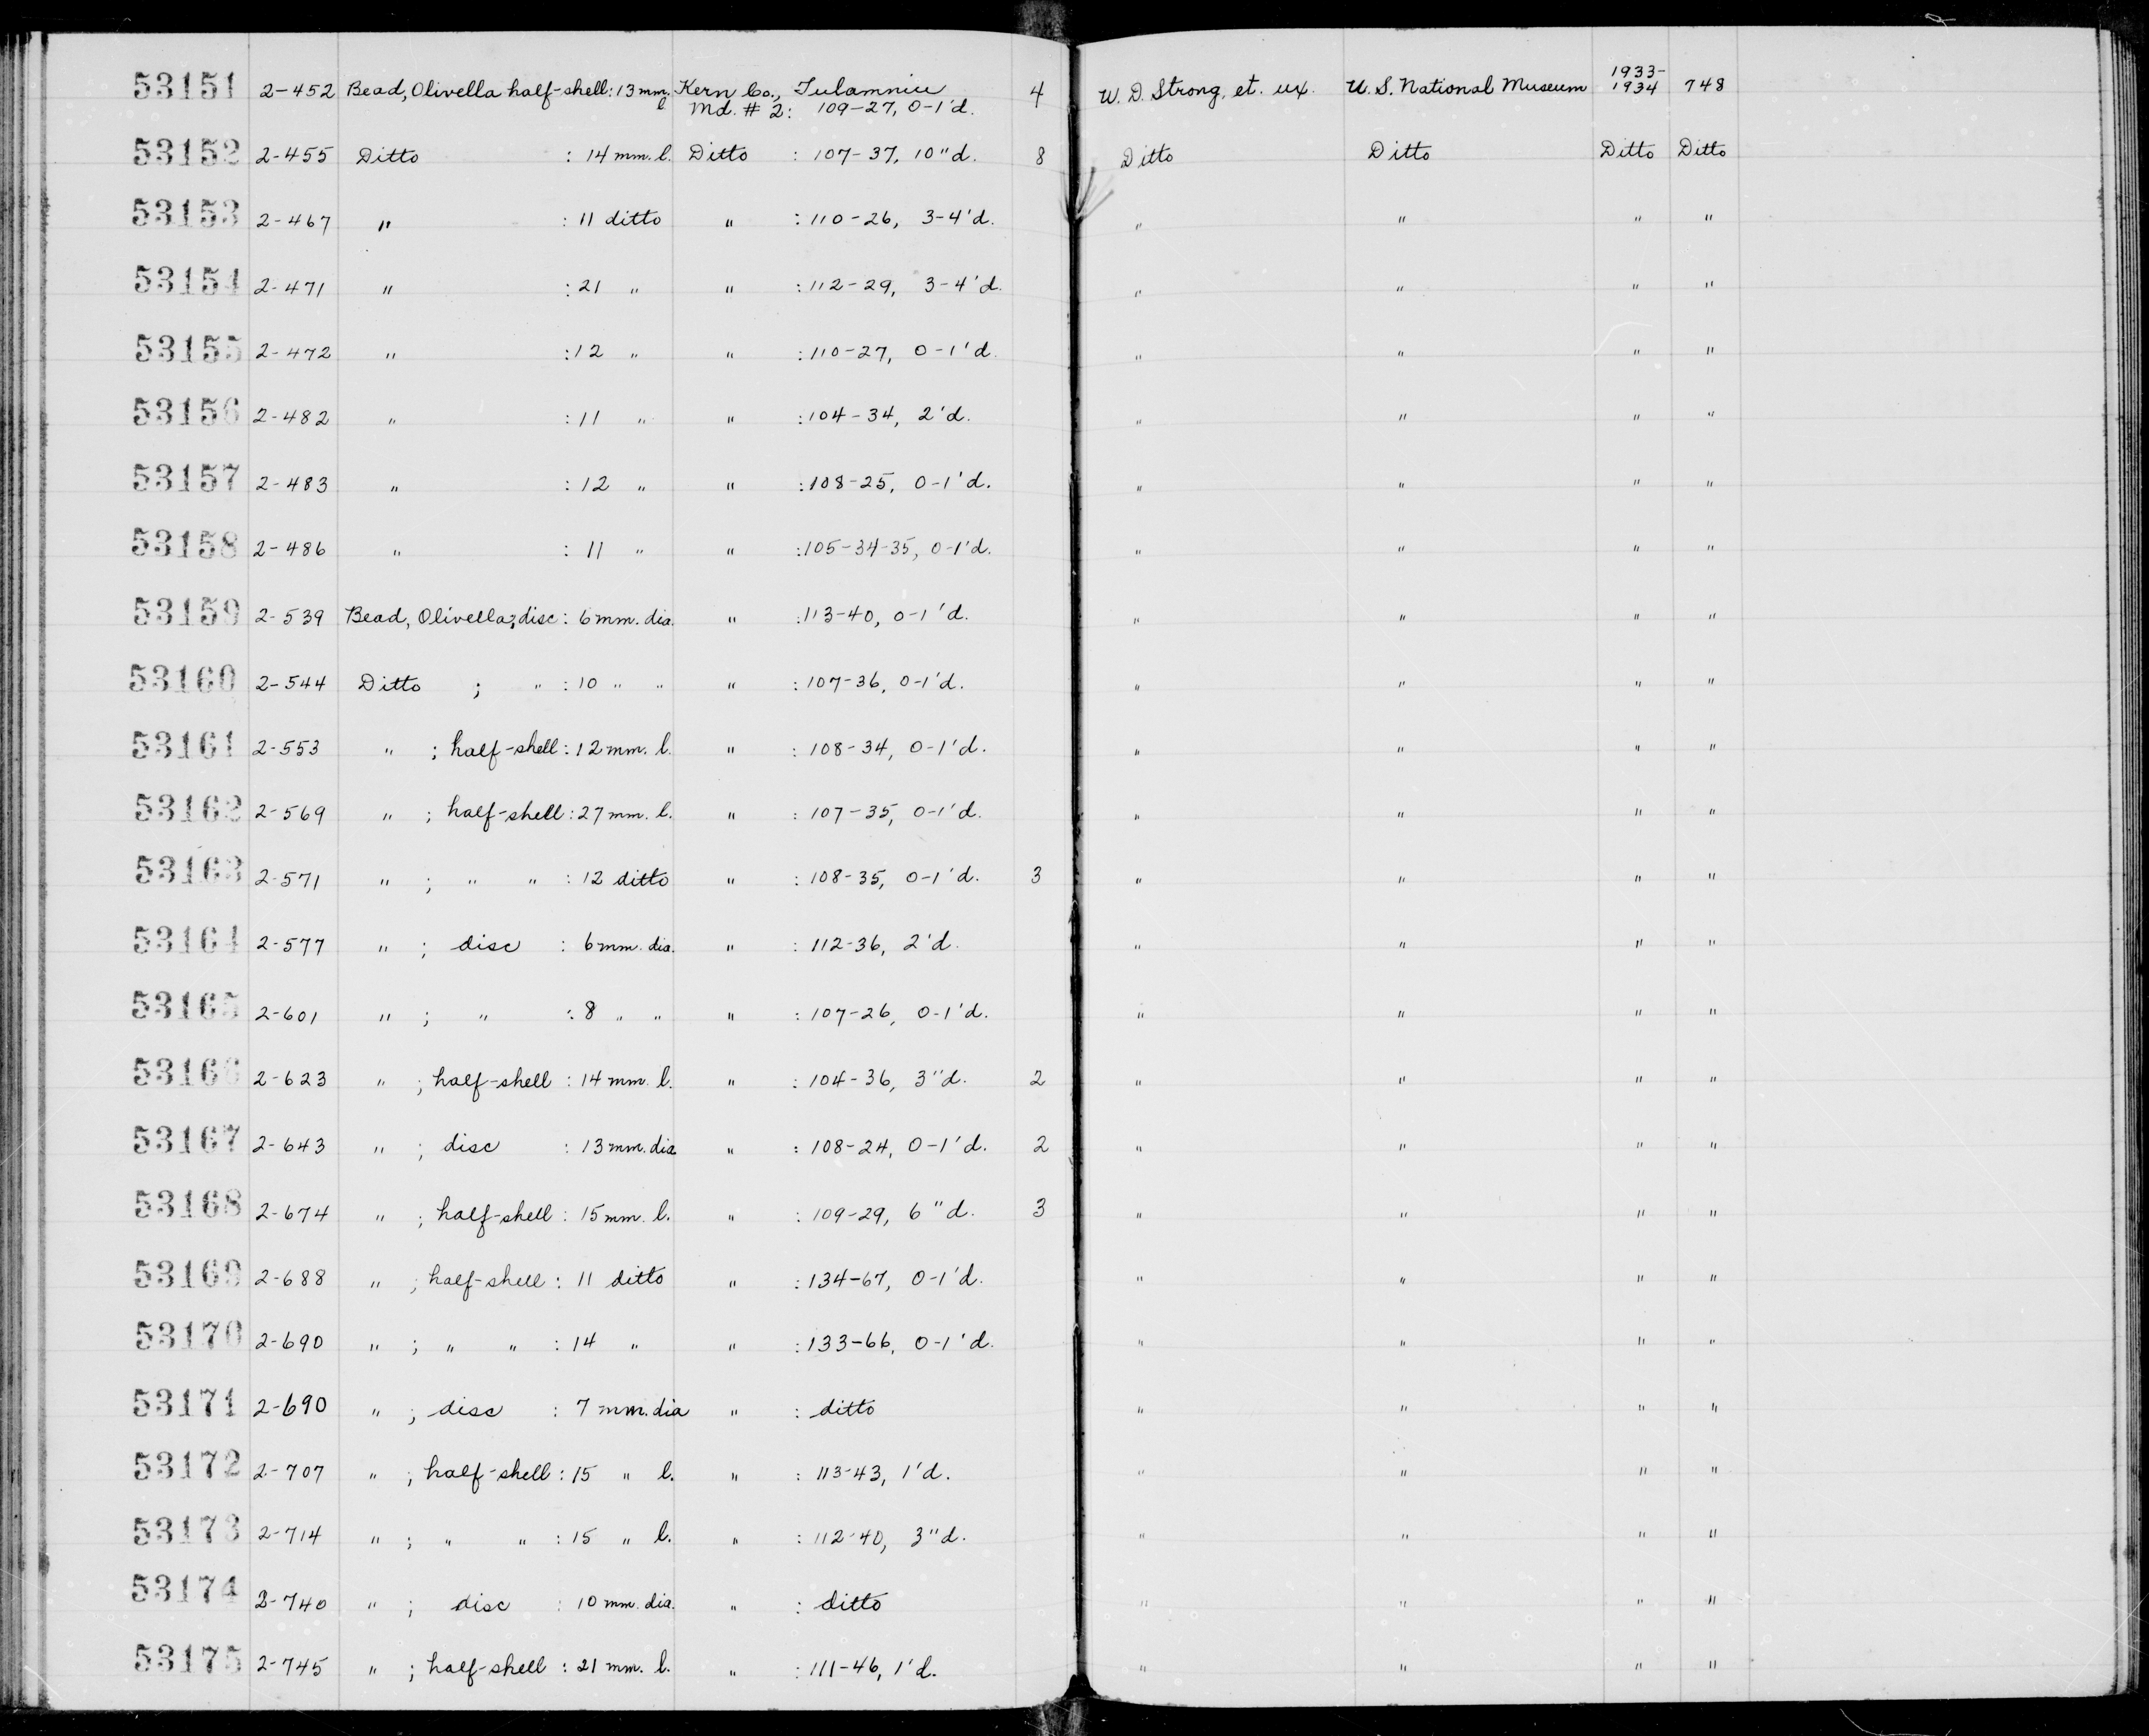 53151 2-452 Bead, Olivella half-shell: 13 mm. l Kern Co., Tulamniu Md. # 2: 109-27, 0-1'd. 4 W. D. Strong, et. ux. U. S. National Museum 1933-1934 748
53152 2-455 Ditto : 14 mm. l. Ditto : 107-37, 10"d. 8 Ditto Ditto Ditto Ditto
53153 2-467 " : 11 ditto " : 110-26, 3-4'd. " " " "
53154 2-471 " : 21 " " : 112-29, 3-4'd. " " " "
53155 2-472 " : 12 " " : 110-27, 0-1'd. " " " "
53156 2-482 " : 11 " " : 104-34, 2'd. " " " "
53157 2-483 " : 12 " " : 108-25, 0-1'd. " " " "
53158 2-486 " : 11 " " : 105-34-35, 0-1'd. " " " "
53159 2-539 Bead, Olivella; disc : 6 mm. dia. " : 113-40, 0-1'd. " " " "
53160 2-544 Ditto ; " : 10 " " " : 107-36, 0-1'd. " " " "
53161 2-553 " ; half-shell : 12 mm. l. " : 108-34, 0-1'd. " " " "
53162 2-569 " ; half-shell : 27 mm. l. " : 107-35, 0-1'd. " " " "
53163 2-571 " ; " " : 12 ditto " : 108-35, 0-1'd. 3 " " " "
53164 2-577 " ; disc : 6 mm. dia. " : 112-36, 2'd. " " " "
53165 2-601 " ; " : 8 " " " : 107-26, 0-1'd. " " " "
53166 2-623 " ; half-shell : 14 mm. l. " : 104-36, 3"d. 2 " " " "
53167 2-643 " ; disc : 13 mm. dia " : 108-24, 0-1'd. 2 " " " "
53168 2-674 " ; half-shell : 15 mm. l. " : 109-29, 6"d. 3 " " " "
53169 2-688 " ; half-shell : 11 ditto " : 134-67, 0-1'd. " " " "
53170 2-690 " ; " " : 14 " " : 133-66, 0-1'd. " " " "
53171 2-690 " ; disc : 7 mm. dia " : ditto " " " "
53172 2-707 " ; half-shell : 15 " l. " : 113-43, 1'd. " " " "
53173 2-714 " ; " " : 15 " l. " : 112-40, 3"d. " " " "
53174 2-740 " ; disc : 10 mm. dia. " : ditto " " " "
53175 2-745 " ; half-shell : 21 mm. l. " : 111-46, 1'd. " " " "